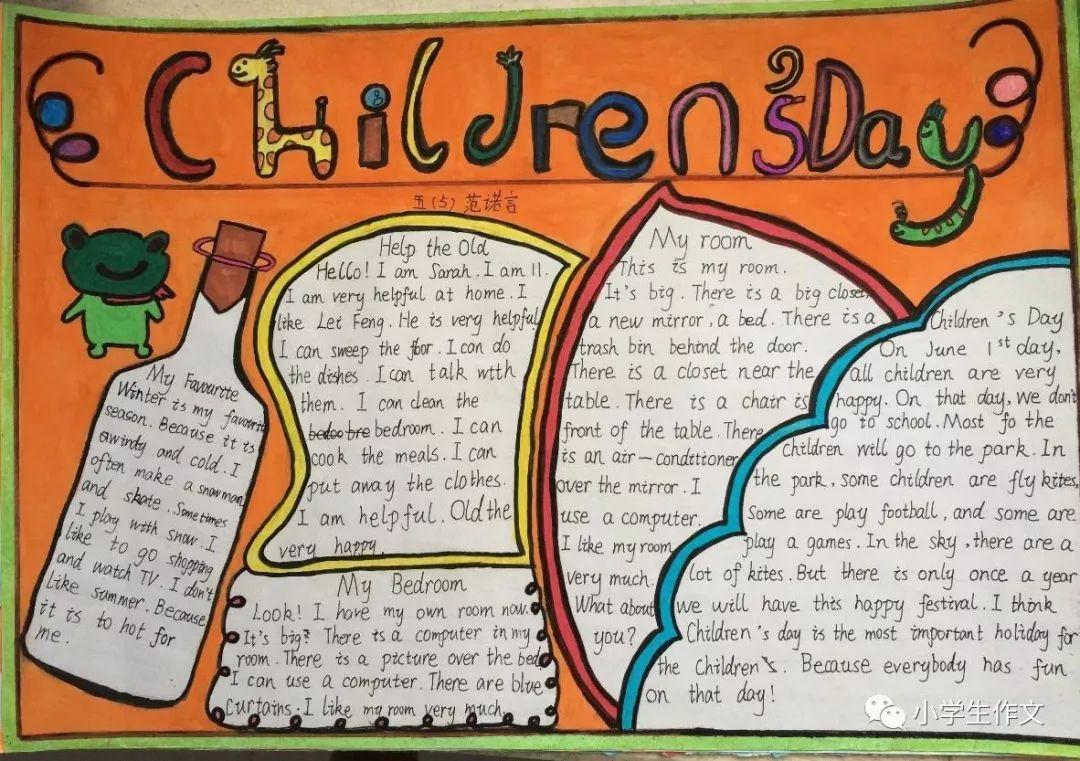 Children's Day
五(5) 范诺言
My Favourite
Winter is my favourite
season. Because it is
windy and cold. I
often make a snowman
and skate. Sometimes
I play with snow. I
like to go shopping
and watch TV. I don't
like summer. Because
it is to hot for
me.
Help the Old
Hello! I am Sarah. I am 11.
I am very helpful at home. I
like Lei Feng. He is very helpful
I can sweep the floor. I can do
the dishes. I can talk with
them. I can clean the
bedroom. I can
cook the meals. I can
put away the clothes.
I am helpful. Old the
very happy.
My Bedroom
Look! I have my own room now.
It's big? There is a computer in my
room. There is a picture over the bed
I can use a computer. There are blue
curtains. I like my room very much
My room
This is my room.
It's big. There is a big closet,
a new mirror, a bed. There is a
trash bin behind the door.
There is a closet near the
table. There is a chair is
front of the table. There
is an air-conditioner
over the mirror. I
use a computer.
I like my room
very much.
What about
you?
Children's Day
On June 1st day,
all children are very
happy. On that day, we don't
go to school. Most fo the
children will go to the park. In
the park, some children are fly kites,
Some are play football, and some are
play a games. In the sky, there are a
lot of kites. But there is only once a year
we will have this happy festival. I think
Children's day is the most important holiday for
the Children's. Because everybody has fun
on that day!
小学生作文